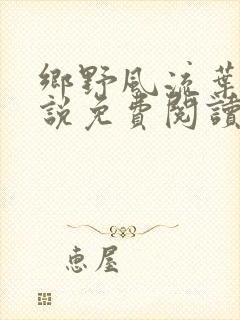 鄉野風流葉
說免費閱讀
惠屋